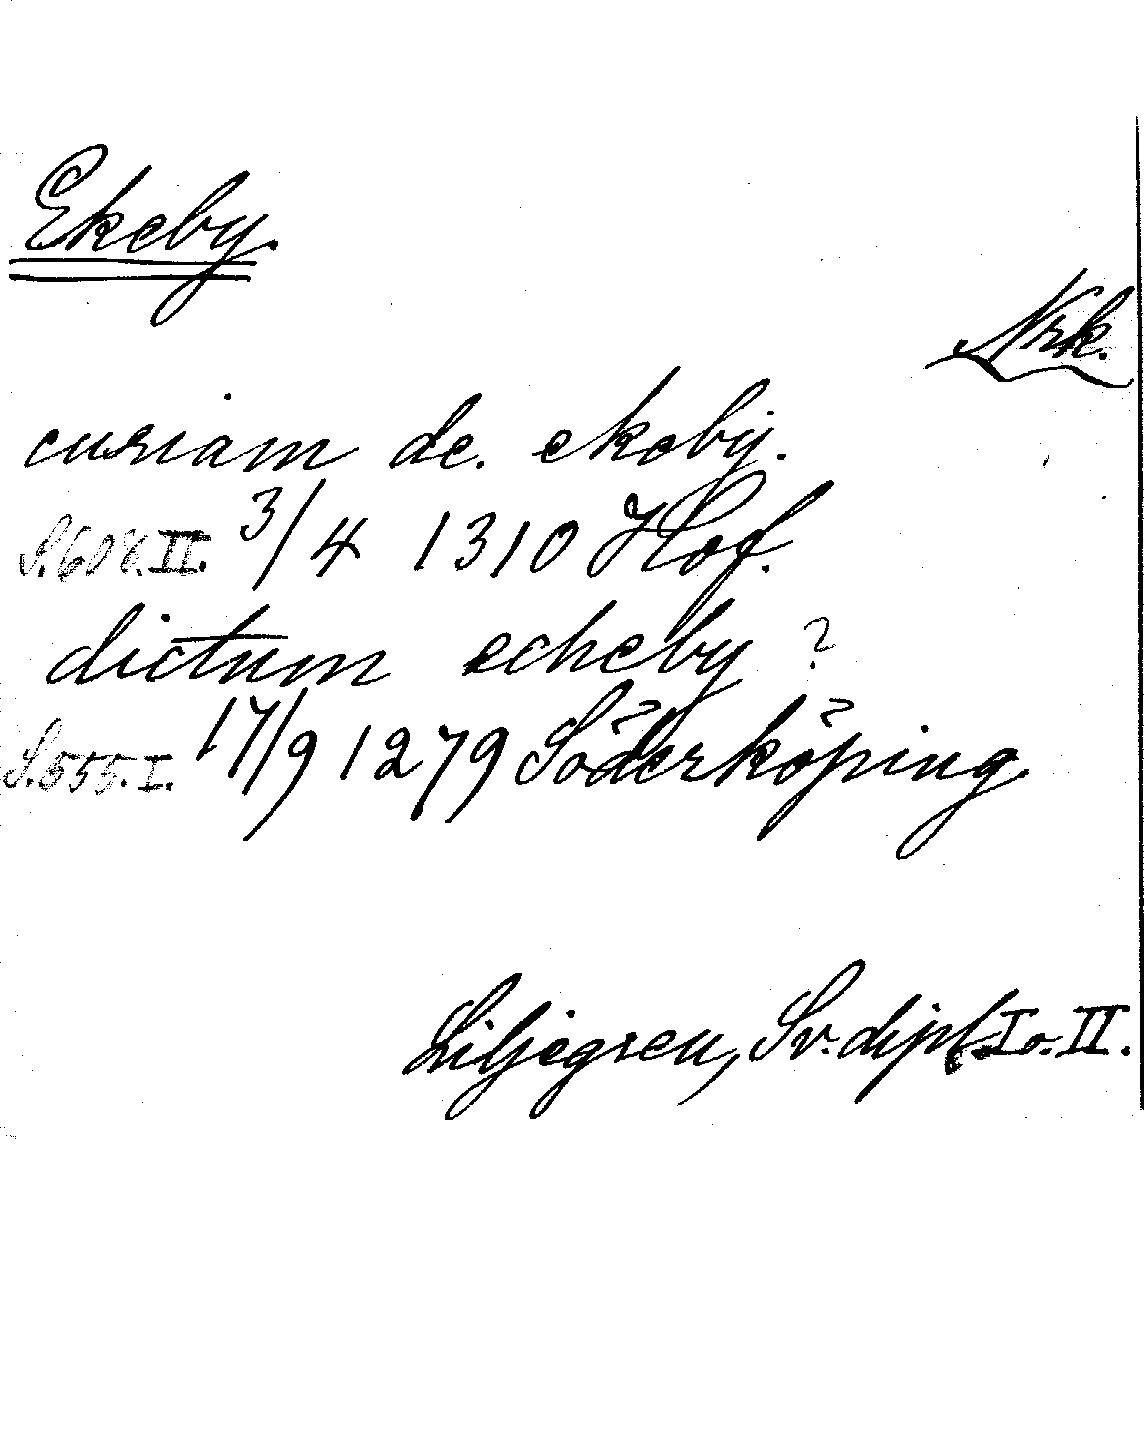 Ekeby.
Nrk.
curiam de. ekeby.
S.608.II. 3/4 1310 Hof.
dictum echeby ?
S.555.I. 17/9 1279 Söderköping
Liljegren, Sv. dipl. I o. II.